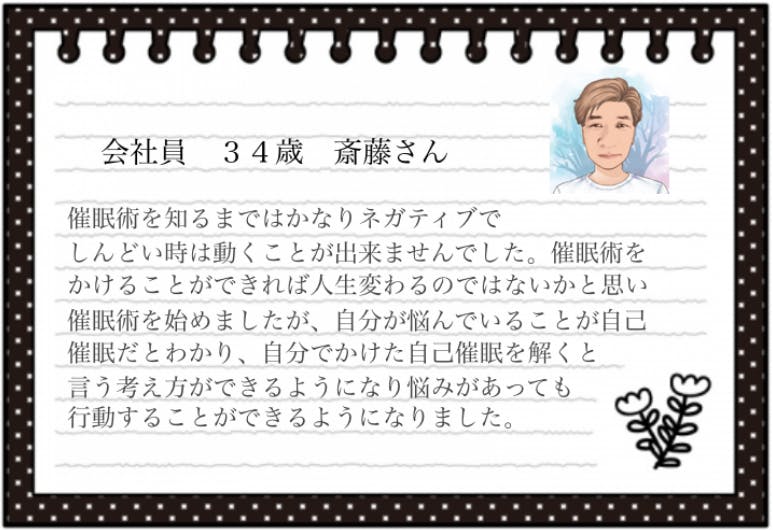 会社員　３４歳　斎藤さん
催眠術を知るまではかなりネガティブで
しんどい時は動くことが出来ませんでした。催眠術を
かけることができれば人生変わるのではないかと思い
催眠術を始めましたが、自分が悩んでいることが自己
催眠だとわかり、自分でかけた自己催眠を解くと
言う考え方ができるようになり悩みがあっても
行動することができるようになりました。